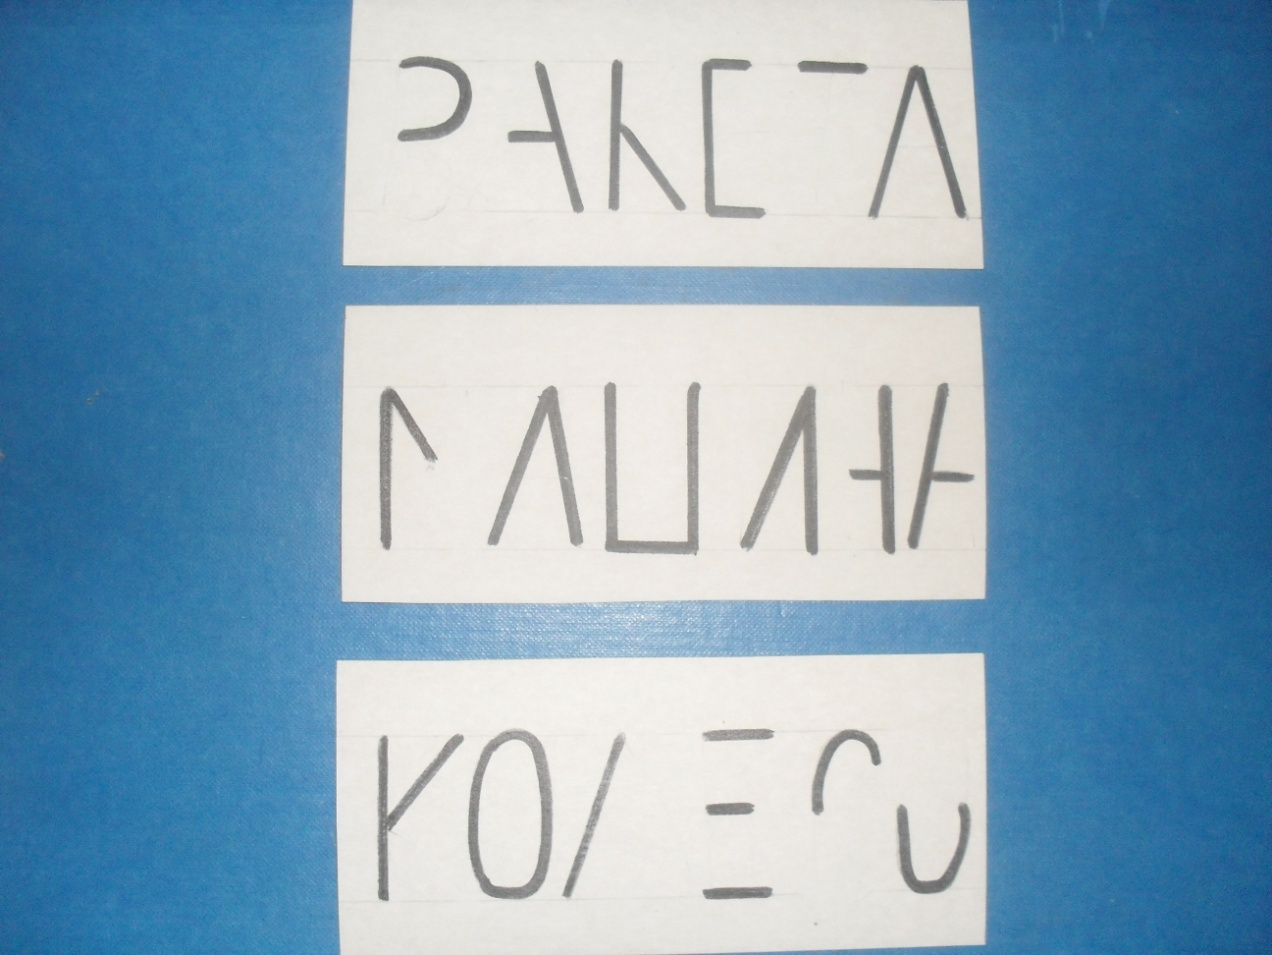 РАКЕТА
МАШИНА
КОЛЕСО